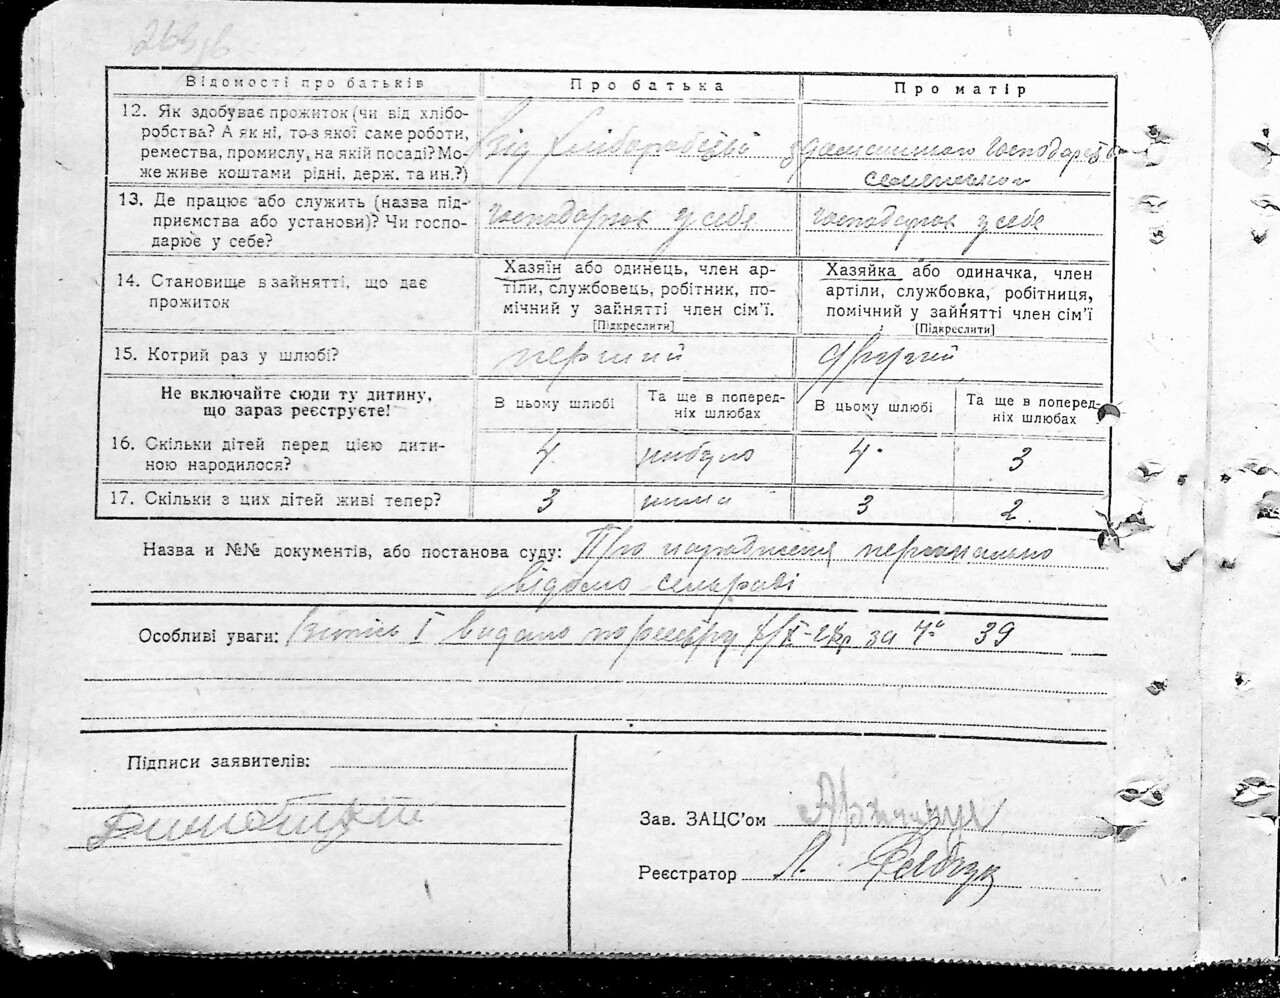 Відомості про батьків
Про батька
Про матір
12. Як здобуває прожиток (чи від хлібо-
робства? А як ні, то з якої саме роботи,
ремества, промислу, на якій посаді? Мо-
же живе коштами рідні, держ. та ин.?)
від хліборобства
з домашнього господарства
13. Де працює або служить (назва під-
приємства або установи)? Чи госпо-
дарює у себе?
господарює у себе
господарює у себе
14. Становище в зайнятті, що дає
прожиток
Хазяїн або одинець, член ар-
тіли, службовець, робітник, по-
мічний у зайнятті член сім'ї.
[Підкреслити]
Хазяйка або одиначка, член
артіли, службовка, робітниця,
помічний у зайнятті член сім'ї
[Підкреслити]
15. Котрий раз у шлюбі?
перший
другий
Не включайте сюди ту дитину,
що зараз реєструєте!
В цьому шлюбі
Та ще в поперед-
ніх шлюбах
В цьому шлюбі
Та ще в поперед-
ніх шлюбах
16. Скільки дітей перед цією дити-
ною народилося?
4
небуло
4
3
17. Скільки з цих дітей живі тепер?
3
нима
3
2
Назва и №№ документів, або постанова суду: Про народженя персонально
відомо сельраді
Особливі уваги: видано по за 39
Підписи заявителів:
Зав. ЗАЦС'ом
Реєстратор Л.